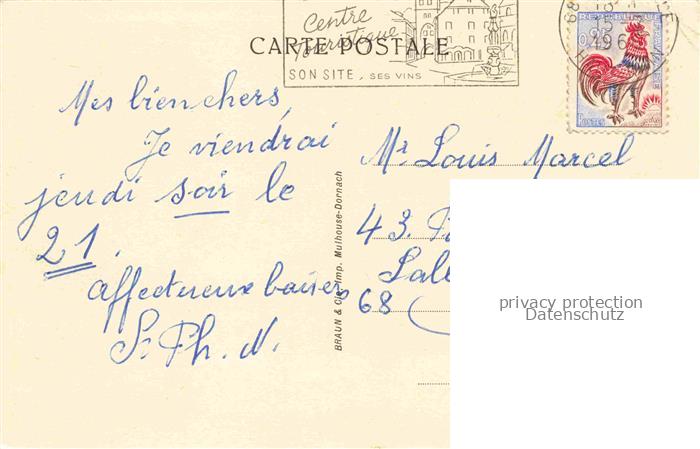 Centre
Touristique
SON SITE, SES VINS
CARTE POSTALE
REPUBLIQUE
0,25
POSTES
68
196
Mes bien chers,
Je viendrai
jeudi soir le
21.
affectueux baisers
S. Ph. N.
BRAUN & Cie, Imp. Mulhouse-Dornach
Mr Louis Marcel
43.
68
privacy protection
Datenschutz